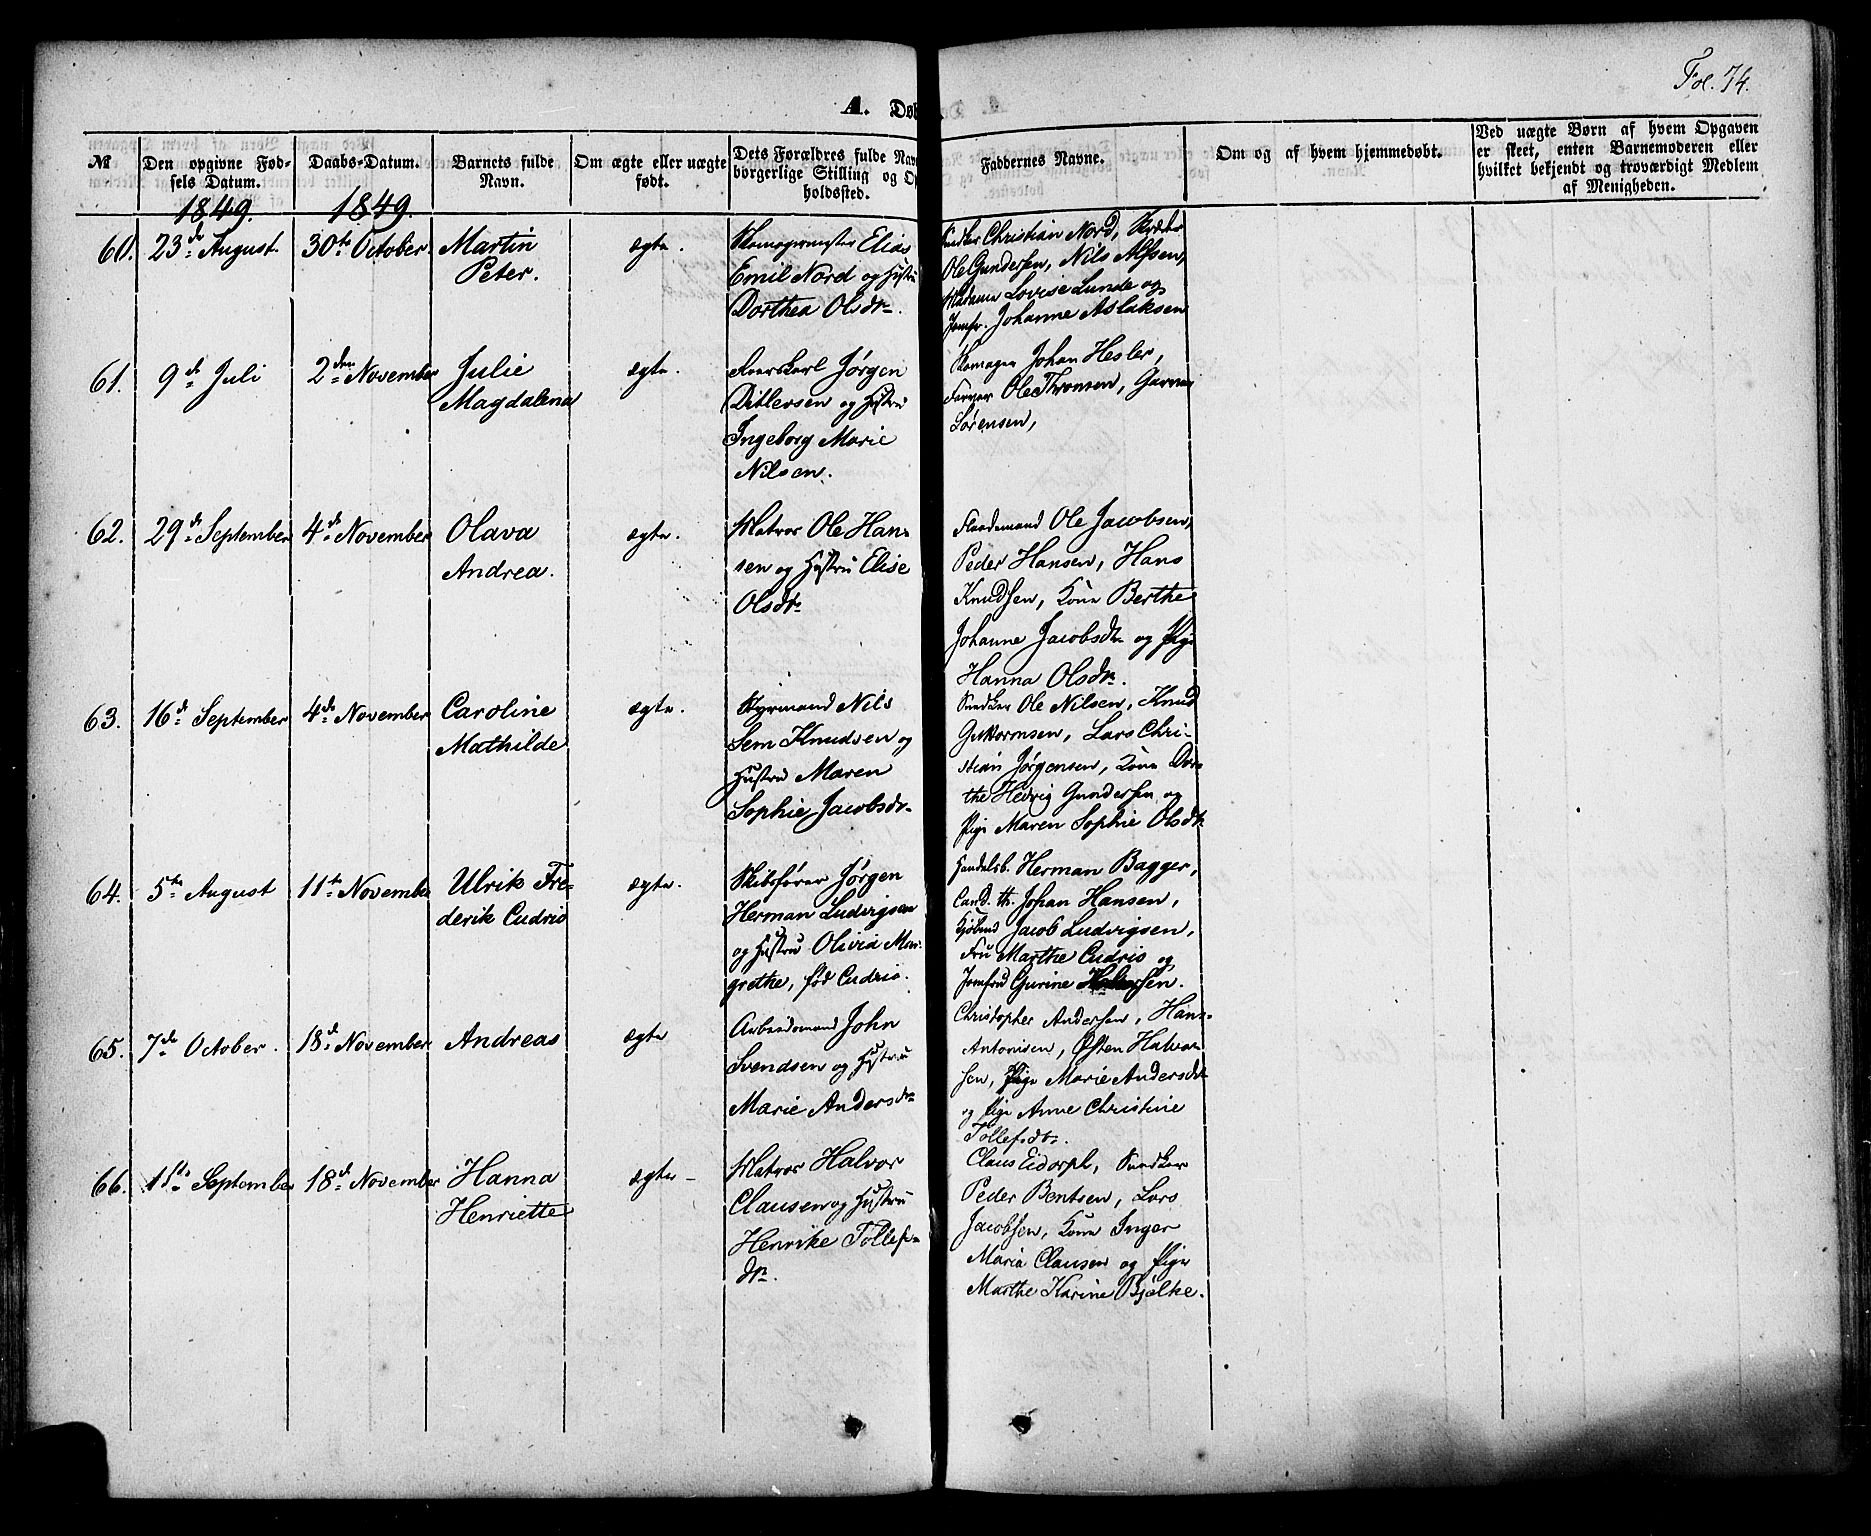 Fol. 74.
A. Døb
№
Den opgivne Fød-
sels Datum.
Daabs-Datum.
Barnets fulde
Navn.
Om ægte eller uægte
født.
Dets Forældres fulde Nav
borgerlige Stilling og Op
holdssted.
Faddernes Navne.
Om og af hvem hjemmedøbt.
Ved uægte Børn af hvem Opgaven
er skeet, enten Barnemoderen eller
hvilket bekjendt og troværdigt Medlem
af Menigheden.
1849. 1849.
60. 23de August 30te October. Martin
Peter.
ægte.
Skomagermester Elias
Emil Nord og Hustru
Dorthea Olsdr.
Snedker Christian Nord, Skræder
Ole Gundersen, Nils Alfsen,
Madame Lovise Lunde og
Jomfr. Johanne Aslaksen
61. 9de Juli 2den November Julie
Magdalena
ægte.
Jørgen
Ditlevsen og Hustru
Ingeborg Marie
Nilsen.
Skomager Johan Hesler,
Farver Ole Thronsen, Garver
Sørensen,
62. 29de September 4de November Olava
Andrea.
ægte.
Matros Ole Han-
sen og Hustru Elise
Olsdr.
Ole Jacobsen,
Peder Hansen, Hans
Knudsen, Kone Berthe
Johanne Jacobsdr og Pige
Hanna Olsdr.
63. 16de September 4de November Caroline
Mathilde
ægte.
Styrmand Nils
Sem Knudsen og
Hustru Maren
Sophie Jacobsdr.
Snedker Ole Nilsen, Knud
Guttormsen, Lars Chri-
stian Jørgensen, Kone Dor-
the Hedvig Gundersen og
Pige Maren Sophie Olsdr.
64. 5te August 11te November Ulrik Fre-
derik Cudrio
ægte.
Skibsfører Jørgen
Herman Ludvigsen
og Hustru Olivia Mar-
grethe, fød Cudrio.
Handelsb. Herman Bagger,
Cand. th. Johan Hansen,
Kjøbmd Jacob Ludvigsen,
Fru Marthe Cudrio og
Jomfru Gurine
65. 7de October. 18de November Andreas
ægte
Arbeidsmand John
Svendsen og Hustru
Marie Andersdr
Christopher Andersen, Hans
Antonisen, Østen Halvor-
sen, Pige Marie Andersdr
og Pige Anne Christine
Tollefsdr.
66. 1ste September 18de November Hanna
Henriette
ægte
Matros Halvor
Clausen og Hustru
Henrike Tollefs-
dr.
Claus Eidorph, Snedker
Peder Bentsen, Lars
Jacobsen, Kone Inger
Maria Clausen og Pige
Marthe Karine Bjelke.